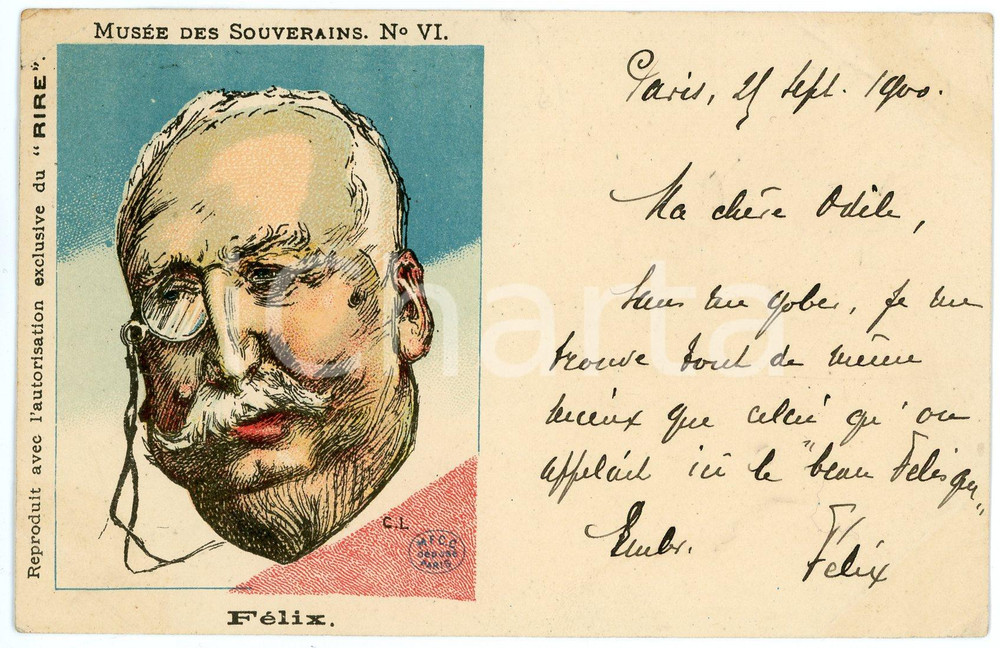 Musée des Souverains. No VI.
Reproduit avec l'autorisation exclusive du "RIRE".
C.L
PARIS
Félix.
Charta
Paris, 25 Sept. 1900.
Ma chère Odile,
Sans me gober, je me
trouve tout de même
mieux que celui qu'on
appelait ici le "beau Félisque"
Embr.
Félix